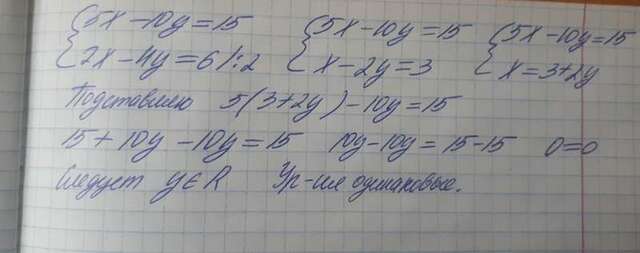 {5x-10y=15 {5x-10y=15 {5x-10y=15
{2x-4y=6 |:2 {x-2y=3 {x=3+2y
Подставляю 5(3+2y)-10y=15
15+10y-10y=15 10y-10y=15-15 0=0
Следует y∈R Ур-ия одинаковые.